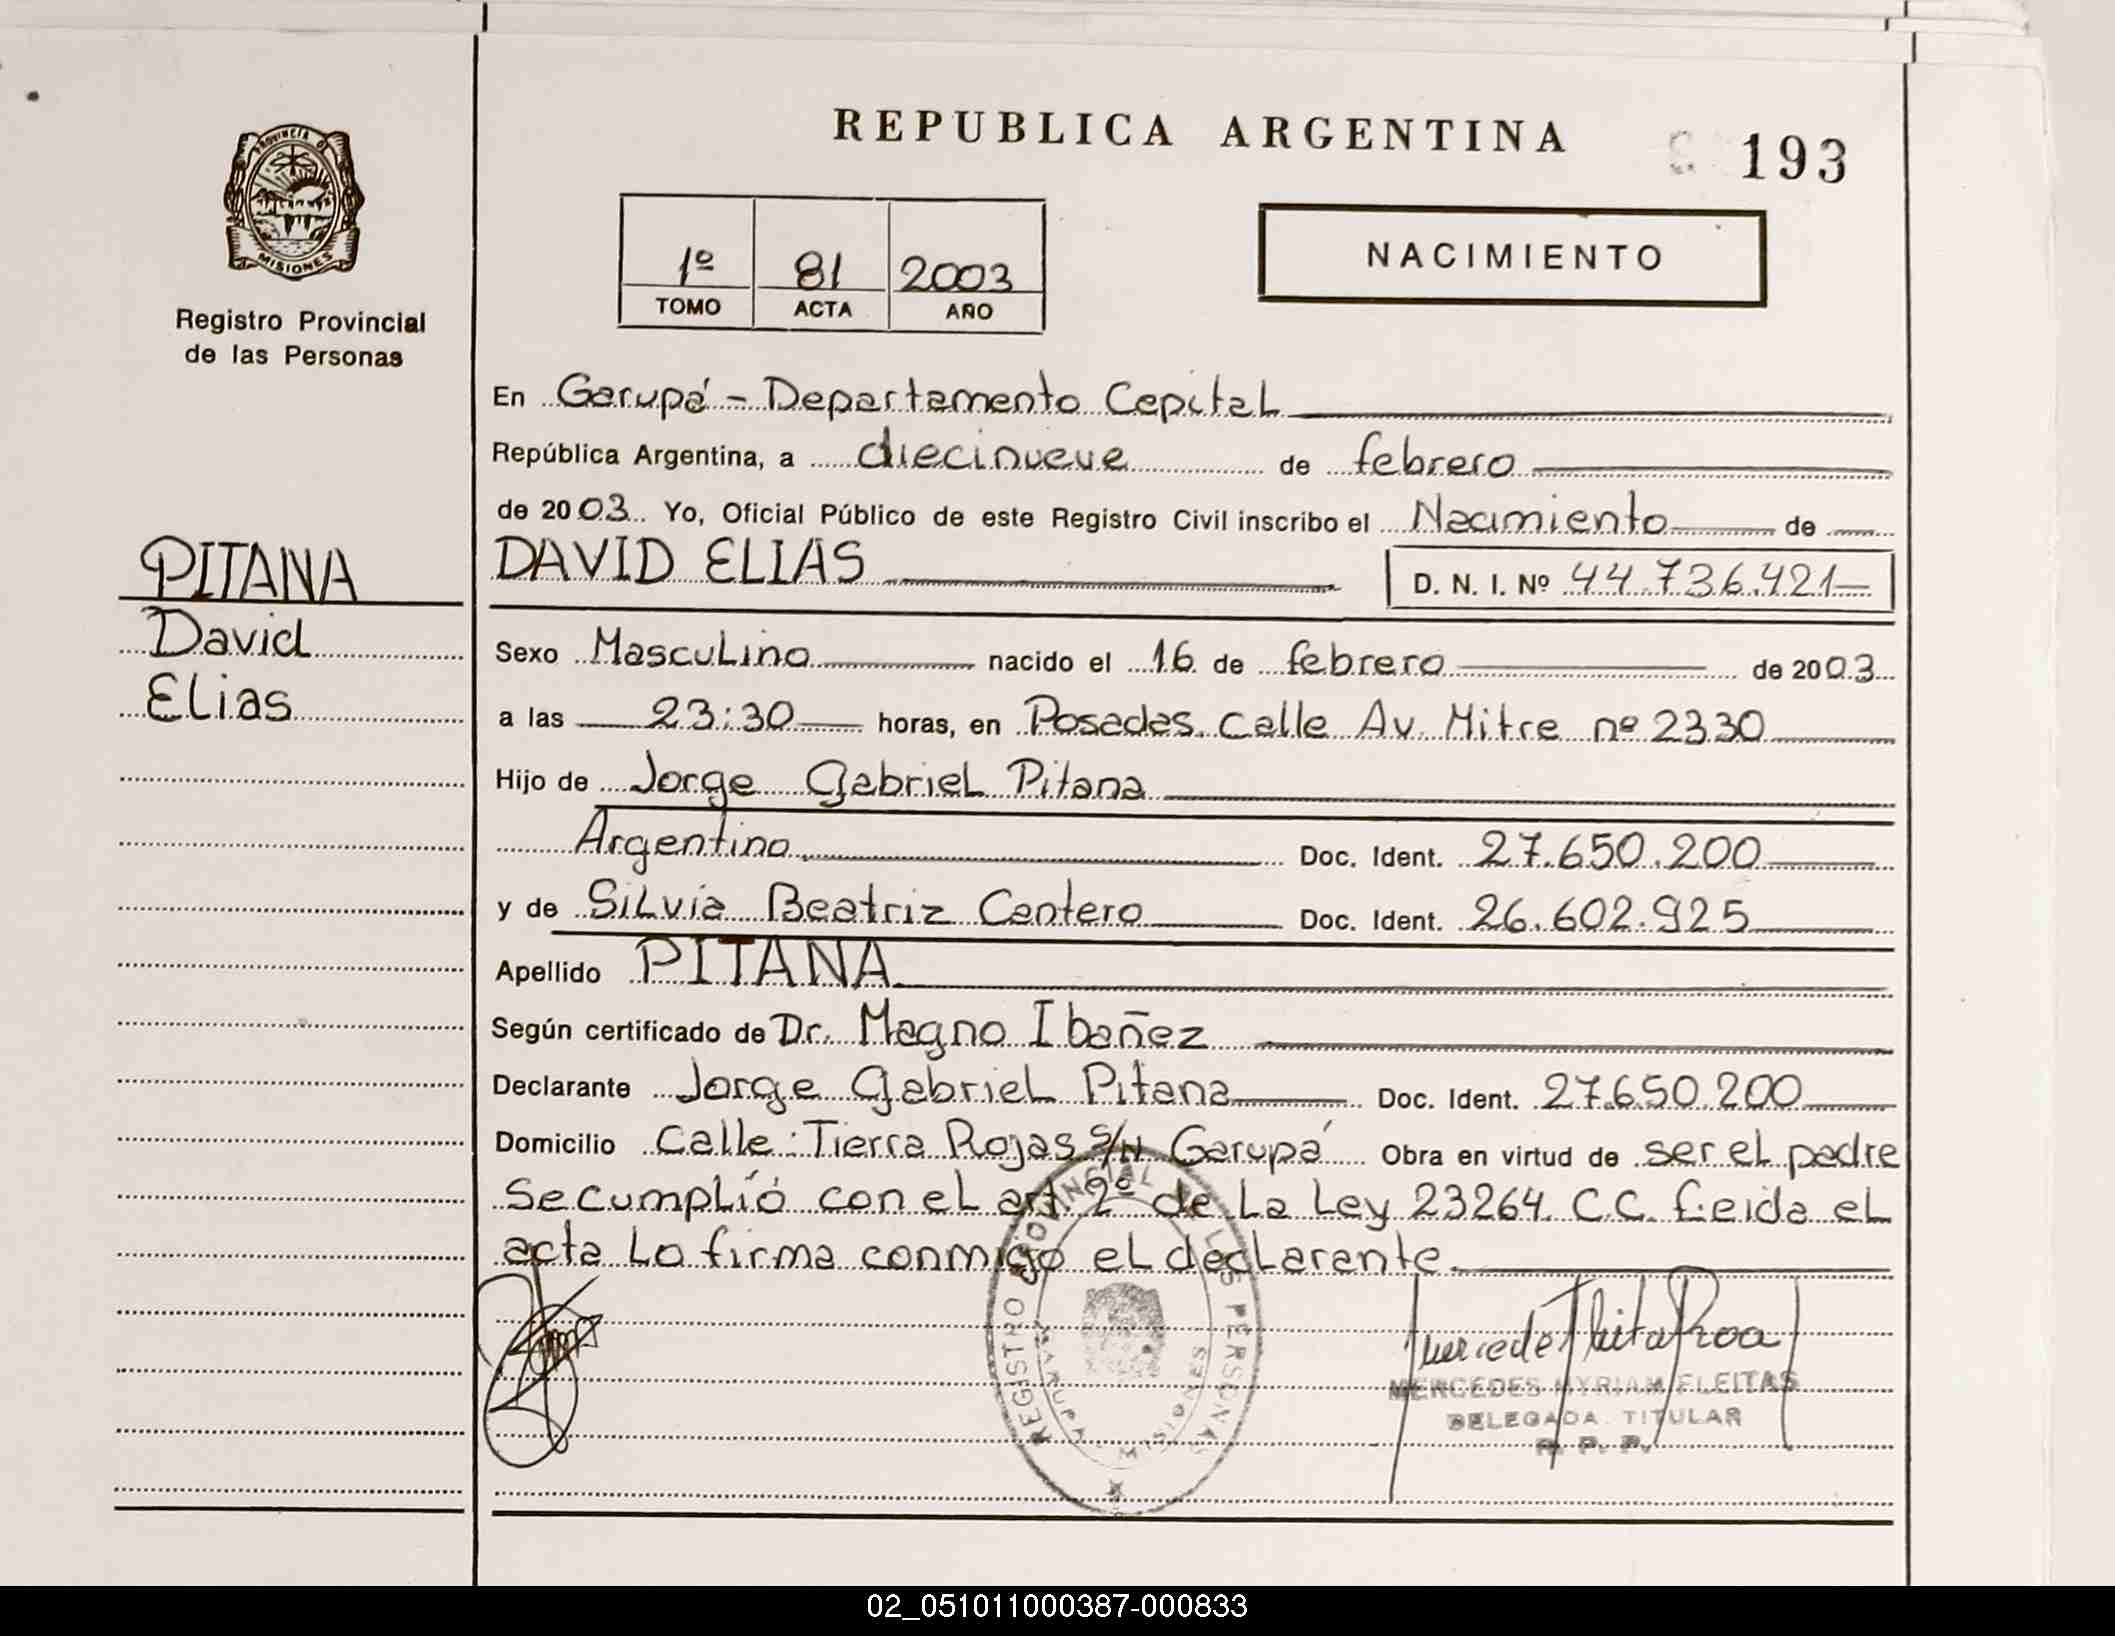 REPUBLICA ARGENTINA
193
PROVINCIA DE
MISIONES
Registro Provincial
de las Personas
1º 81 2003
TOMO ACTA AÑO
NACIMIENTO
En Garupá - Departamento Capital
República Argentina, a diecinueve de febrero
de 2003. Yo, Oficial Público de este Registro Civil inscribo el Nacimiento de
PITANA
David
Elias
DAVID ELIAS D. N. I. Nº 44.736.421
Sexo Masculino nacido el 16 de febrero de 2003
a las 23:30 horas, en Posadas. Calle Av. Mitre nº 2330
Hijo de Jorge Gabriel Pitana
Argentino Doc. Ident. 27.650.200
y de Silvia Beatriz Centero Doc. Ident. 26.602.925
Apellido PITANA
Según certificado de Dr. Magno Ibañez
Declarante Jorge Gabriel Pitana Doc. Ident. 27.650.200
Domicilio Calle: Tierra Rojas s/n Garupá Obra en virtud de ser el padre
Se cumplió con el art. 2º de La Ley 23264. C.C. Leida el
acta Lo firma conmigo el declarante.
REGISTRO PROVINCIAL DE LAS PERSONAS
GARUPA - MISIONES
MERCEDES MYRIAM FLEITAS
DELEGADA TITULAR
R. P. P.
02_051011000387-000833